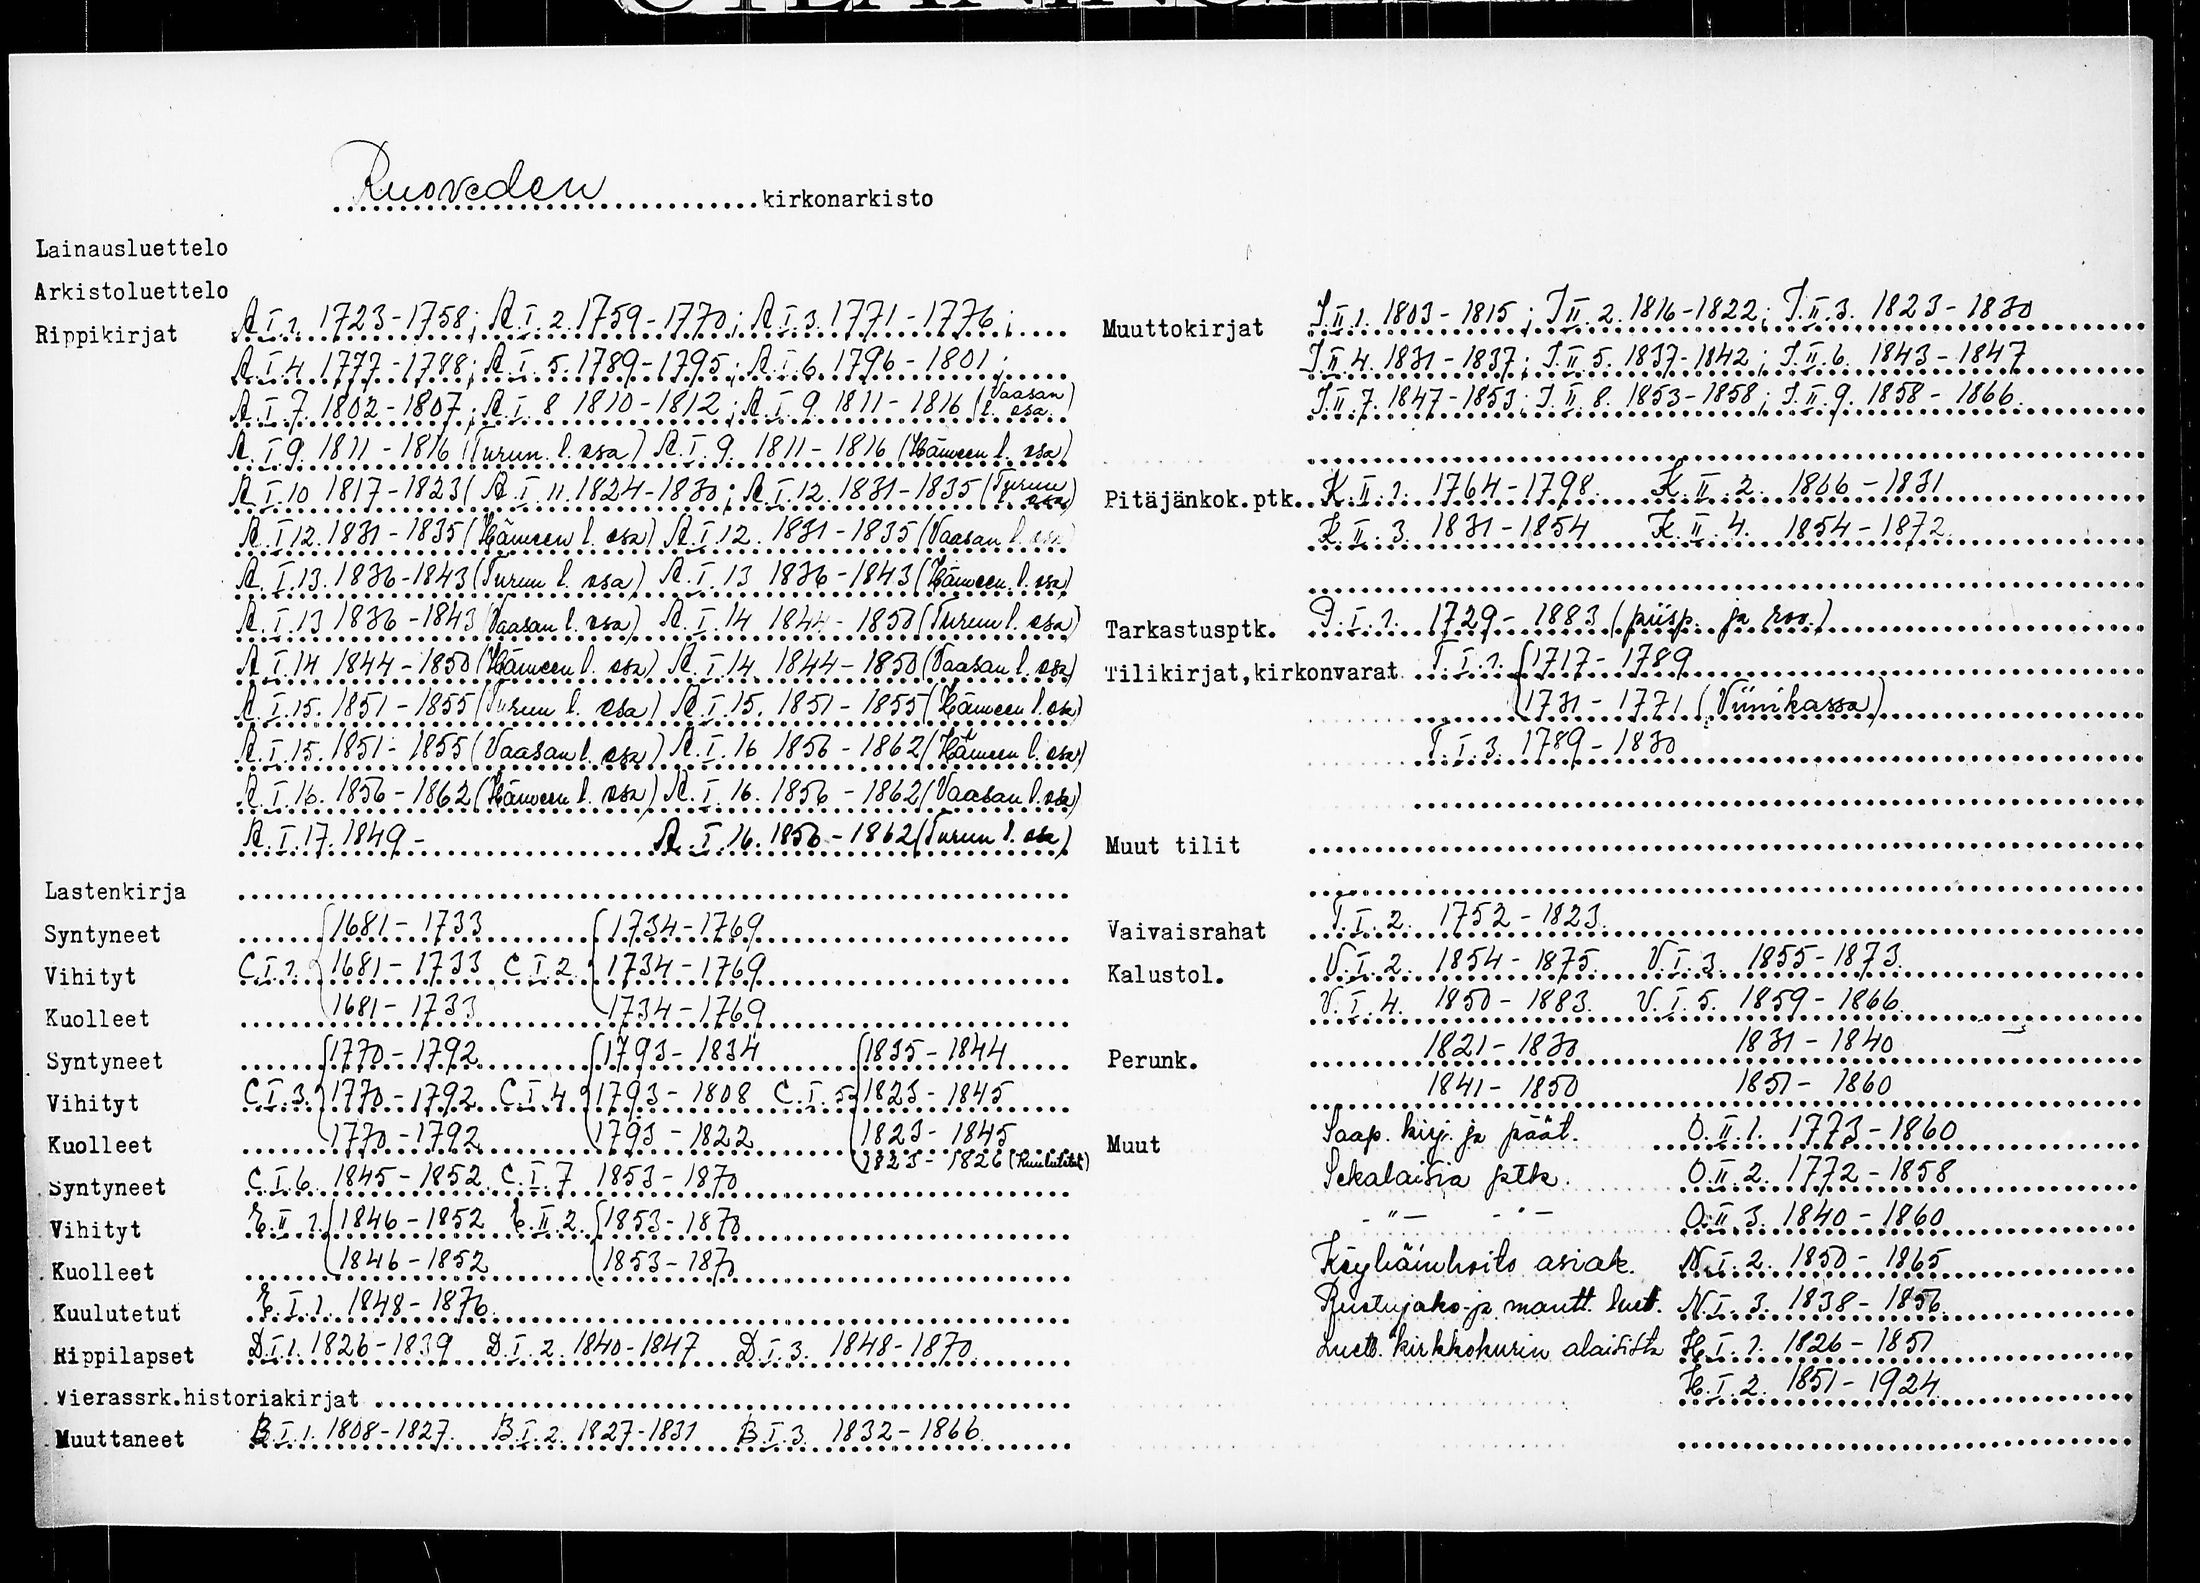 Ruoveden kirkonarkisto
Lainausluettelo
Arkistoluettelo
Rippikirjat A.I.1. 1723-1758; A.I.2. 1759-1770; A.I.3. 1771-1776;
A.I.4. 1777-1788; A.I.5. 1789-1795; A.I.6. 1796-1801;
A.I.7. 1802-1807; A.I.8 1810-1812; A.I.9. 1811-1816 (Vaasan l. osa)
A.I.9. 1811-1816 (Turun l. osa) A.I.9. 1811-1816 (Hämeen l. osa)
A.I.10 1817-1823( A.I.11. 1824-1830; A.I.12. 1831-1835 (Turun l. osa)
A.I.12. 1831-1835 (Hämeen l. osa) A.I.12. 1831-1835 (Vaasan l. osa)
A.I.13. 1836-1843 (Turun l. osa) A.I.13 1836-1843 (Hämeen l. osa)
A.I.13 1836-1843 (Vaasan l. osa) A.I.14 1844-1850 (Turun l. osa)
A.I.14 1844-1850 (Hämeen l. osa) A.I.14. 1844-1850 (Vaasan l. osa)
A.I.15. 1851-1855 (Turun l. osa) A.I.15. 1851-1855 (Hämeen l. osa)
A.I.15. 1851-1855 (Vaasan l. osa) A.I.16 1856-1862 (Hämeen l. osa)
A.I.16. 1856-1862 (Hämeen l. osa) A.I.16. 1856-1862 (Vaasan l. osa)
A.I.17. 1849- A.I.16. 1856-1862 (Turun l. osa)
Lastenkirja
Syntyneet 1681-1733 1734-1769
Vihityt C.I.1. 1681-1733 C.I.2. 1734-1769
Kuolleet 1681-1733 1734-1769
Syntyneet 1770-1792 1793-1834 1835-1844
Vihityt C.I.3. 1770-1792 C.I.4 1793-1808 C.I.5 1823-1845
Kuolleet 1770-1792 1793-1822 1823-1845
1823-1826 (Kuulutetut)
Syntyneet C.I.6. 1845-1852 C.I.7 1853-1870
Vihityt E.II.1. 1846-1852 E.II.2. 1853-1870
Kuolleet 1846-1852 1853-1870
Kuulutetut E.I.1. 1848-1876.
Rippilapset D.I.1. 1826-1839 D.I.2. 1840-1847 D.I.3. 1848-1870.
Vierassrk.historiakirjat
Muuttaneet B.I.1. 1808-1827. B.I.2. 1827-1831 B.I.3. 1832-1866.
Muuttokirjat J.II.1. 1803-1815; J.II.2. 1816-1822; J.II.3. 1823-1830
J.II.4. 1831-1837; J.II.5. 1837-1842; J.II.6. 1843-1847
J.II.7. 1847-1853; J.II.8. 1853-1858; J.II.9. 1858-1866.
Pitäjänkok.ptk. K.II.1. 1764-1798. K.II.2. 1806-1831
K.II.3. 1831-1854 K.II.4. 1854-1872.
Tarkastusptk. I.1. 1729-1883 (piisp. ja rov.)
Tilikirjat,kirkonvarat T.I.1. 1717-1789
1731-1771 (Viinikassa)
T.I.3. 1789-1830
Muut tilit
Vaivaisrahat T.I.2. 1752-1823.
Kalustol. V.I.2. 1854-1875. V.I.3. 1855-1873.
V.I.4. 1850-1883. V.I.5. 1859-1866.
Perunk. 1821-1830 1831-1840
1841-1850 1851-1860
Muut Saap. kirj. ja päät. O.II.1. 1773-1860
Sekalaisia ptk. O.II.2. 1772-1858
-"- -"- O.II.3. 1840-1860
Köyhäinhoito asiak. N.I.2. 1850-1865
Ruotujako- ja mantt. luet. N.I.3. 1838-1856.
Luett. kirkkokurin alaisista H.I.1. 1826-1851
H.I.2. 1851-1924.